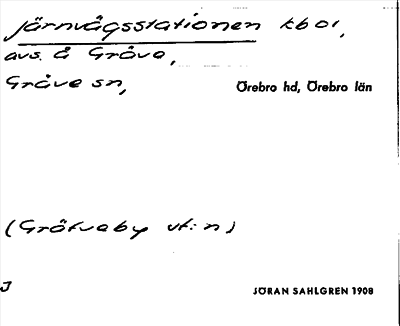 järnvägsstationen kbol,
avs. å Gräve,
Gräve sn,
Örebro hd, Örebro län
(Gräfveby vt:n)
J
JÖRAN SAHLGREN 1908